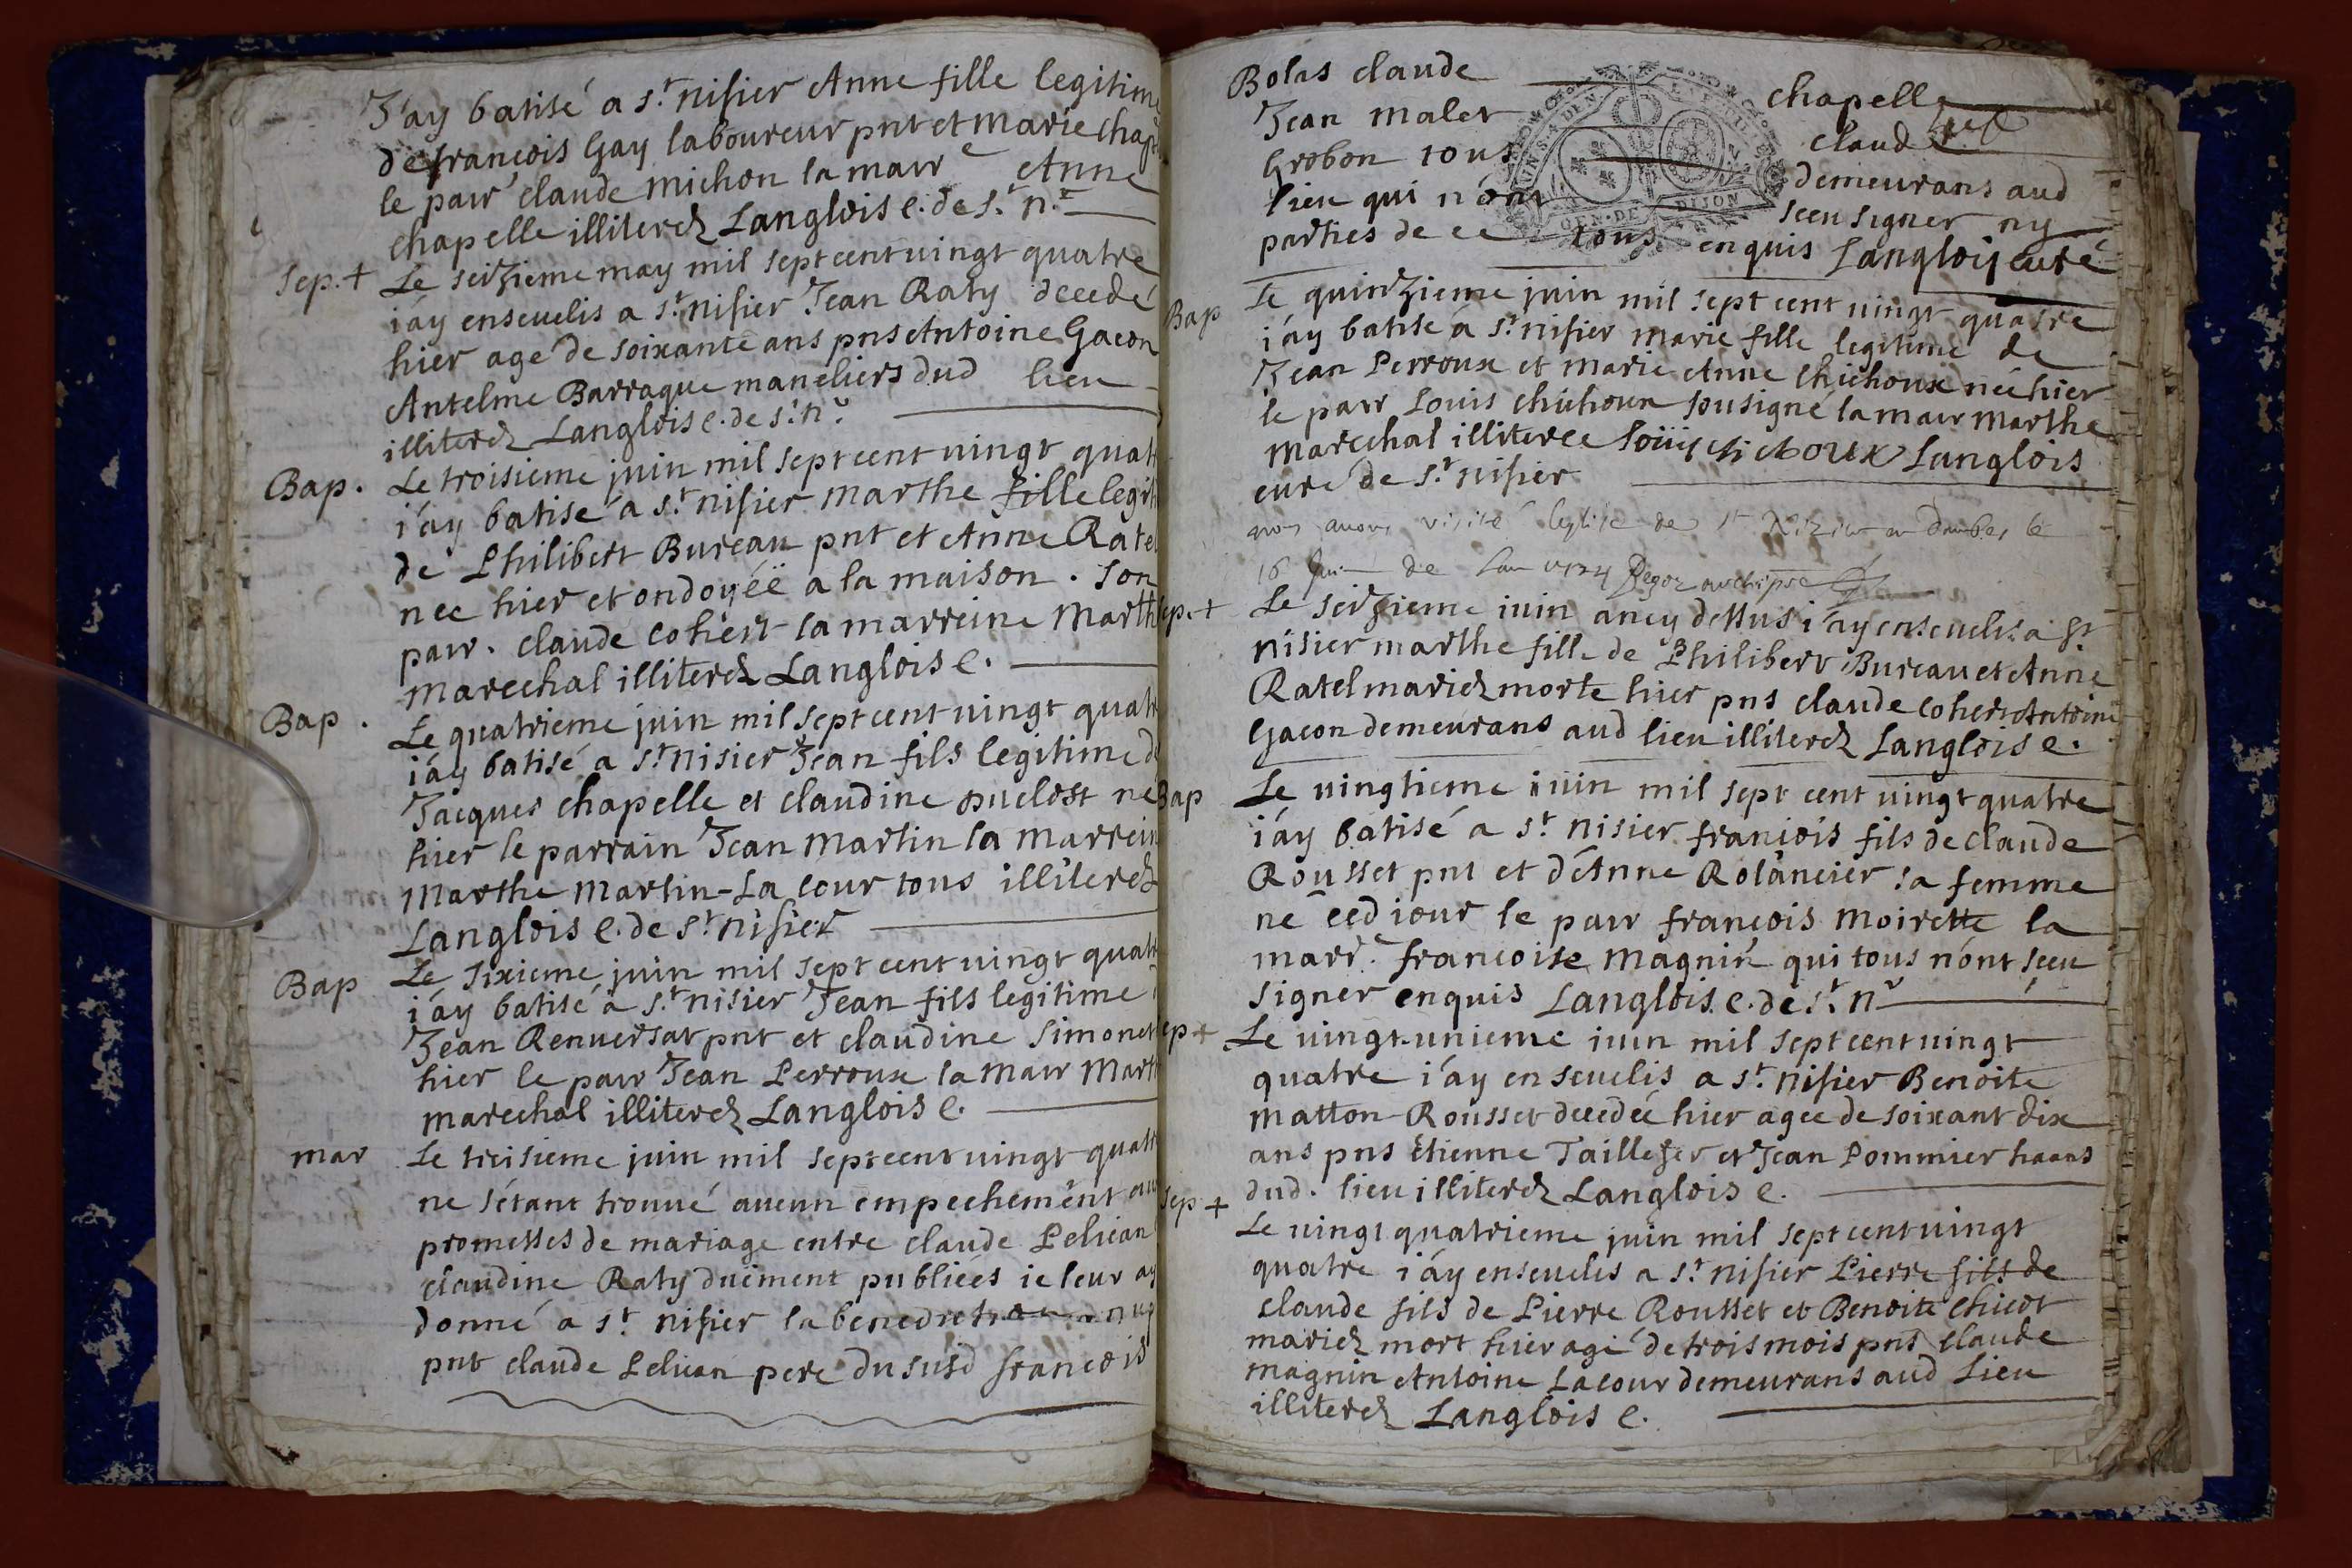 J'ay batisé a s.t nisier Anne fille legitim
de françois Gay laboureur pnt et marie chap
le parr claude michon la marr Anne
chapelle illiterez Langlois c. de s.t n.r
Sep. + Le seizieme may mil sept cent vingt quatre
i'ay enseuelis a s.t nisier Jean Raty decedé
hier age de soixante ans pns Antoine Gacon
Antelme Barraque maneliers dud lieu
illiterez Langlois c. de s.t n.r
Bap. Le troisieme juin mil sept cent vingt quat
i'ay batisé a s.t nisier marthe fille legit
de Philibert Bureau pnt et Anne Ratel
nee hier et ondoyéë a la maison. son
parr. claude cohert la marreine Marth
marechal illiterez Langlois c.
Bap. Le quatrieme juin mil sept cent vingt quatr
i'ay batisé a s.t nisier Jean fils legitime d
Jacques chapelle et claudine puclost ne
hier le parrain Jean Martin la Marrein
Marthe Martin-La cour tous illiterez
Langlois c. de s.t nisier
Bap Le sixieme juin mil sept cent vingt quatr
i'ay batisé a s.t nisier Jean fils legitime
Jean Renuersat pnt et claudine simonet
hier le parr Jean Perroux la marr Mart
marechal illiterez Langlois c.
mar Le treisieme juin mil sept cent vingt quatr
ne s'étant trouué aucun empechemént au
promesses de mariage entre claude Pelican
claudine Raty duëment publiées ie leur ay
donné a s.t nisier la benediction nup
pnt claude Pelican pere du susd françois
Bolas claude chapelle
Jean malet claud
Grobon tous demeurans aud
lieu qui n'ont sceu signer ny
parties de ce tous enquis Langlois curé
GEN. DE DIJON
Bap Le quinzieme juin mil sept cent vingt quatre
i'ay batisé a s.t nisier marie fille legitime de
Jean Perroux et marie Anne chichoux née hier
le parr Louis chichoux sousigné la marr marthe
marechal illiteree loüis chichoux Langlois
curé de s.t nisier
nous auons visité leglise de st Nizier en dombes le
16 juin de lan 1724 archiprê
Sep. + Le seizieme iuin an cy dessus i'ay enseuelis a st
nisier marthe fille de Philibert Bureau et Anne
Ratel mariez morte hier pns claude cohert Antoine
Gacon demeurans aud lieu illiterez Langlois c.
Bap Le vingtieme iuin mil sept cent vingt quatre
i'ay batisé a s.t nisier françois fils de claude
Rousset pnt et d'Anne Rolancier sa femme
né ced iour le parr françois moirette la
marr. françoise magnin qui tous n'ont sceu
signer enquis Langlois c. de s.t n.r
Sep + Le vingt-unieme iuin mil sept cent vingt
quatre i'ay enseuelis a s.t nisier Benoite
matton-Rousset decedée hier agee de soixant dix
ans pns Etienne Taillefer et Jean Pommier haans
dud. lieu illiterez Langlois c.
Sep + Le vingt quatrieme juin mil sept cent vingt
quatre i'ay enseuelis a s.t nisier Pierre fils de
claude fils de Pierre Rousset et Benoite chicot
mariez mort hier agé de trois mois pns claude
magnin Antoine Lacour demeurans aud lieu
illiterez Langlois c.